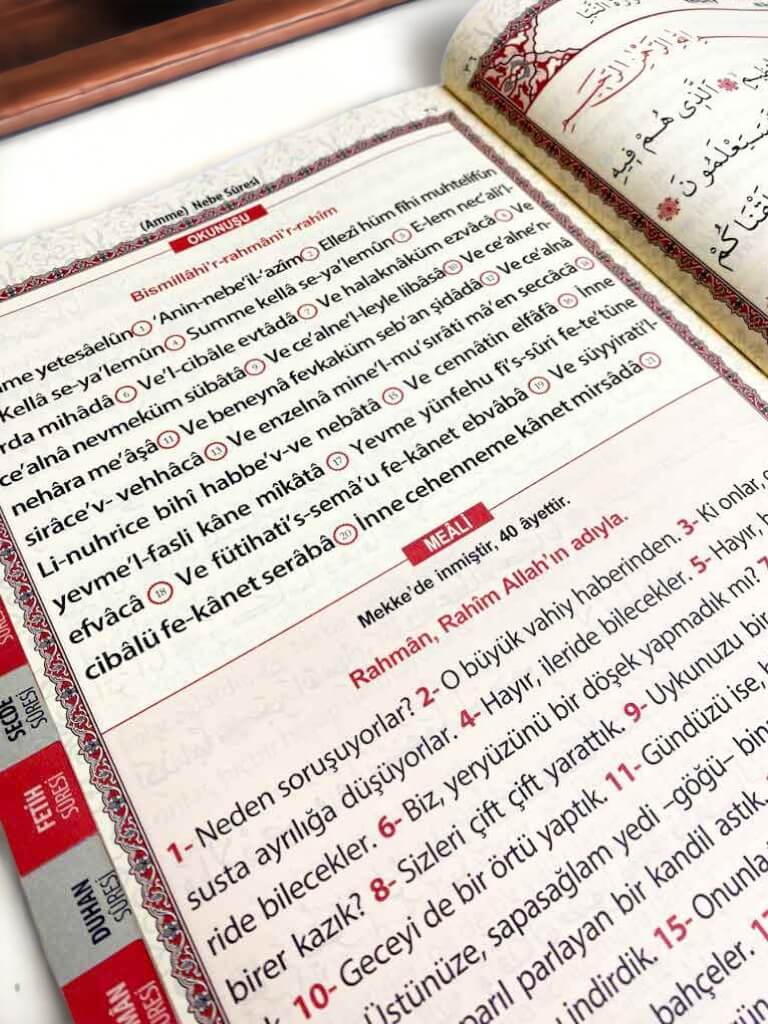 (Amme) Nebe Sûresi
OKUNUŞU
Bismillâhi'r-rahmâni'r-rahim
yetesâelûn 1 'Anin-nebe'il-'azîm 2 Ellezi hüm fîhi muhtelifûn
Kellâ se-ya'lemûn 4 Summe kellâ se-ya'lemûn 5 E-lem nec'ali'l-
rda mihâdâ 6 Ve'l-cibâle evtâdâ 7 Ve halaknâküm ezvâcâ Ve
ce'alnâ nevmeküm sübâtâ 9 Ve ce'alne'l-leyle libâsâ 10 Ve ce'alne'n-
nehâra me'âşâ 11 Ve beneynâ fevkaküm seb'an şidâdâ 12 Ve ce'alnâ
sirâce'v- vehhâcâ 13 Ve enzelnâ mine'l-mu'sırâti mâ'en seccâcâ
Li-nuhrice bihî habbe'v-ve nebâtâ 15 Ve cennâtin elfâfâ 16 İnne
yevme'l-fasli kâne mîkâtâ 17 Yevme yünfehu fi's-sûri fe-te'tûne
efvâcâ 18 Ve fütihati's-semâ'u fe-kânet ebvâbâ 19 Ve süyyirati'l-
cibâlü fe-kânet serâbâ 20 İnne cehenneme kânet mirsâdâ 21
MEÂLİ
Mekke'de inmiştir, 40 âyettir.
Rahmân, Rahîm Allah'ın adıyla.
1- Neden soruşuyorlar? 2- O büyük vahiy haberinden. 3- Ki onlar,
susta ayrılığa düşüyorlar. 4- Hayır, ileride bilecekler. 5- Hayır,
ride bilecekler. 6- Biz, yeryüzünü bir döşek yapmadık mı?
birer kazık? 8- Sizleri çift çift yarattık. 9- Uykunuzu
10- Geceyi de bir örtü yaptık. 11- Gündüzü ise,
Üstünüze, sapasağlam yedi –göğü–
parlayan bir kandil astık.
indirdik. 15- Onunla
bahçeler.
SECDE SÛRESİ
FETİH SÛRESİ
DUHAN SÛRESİ
الَّذِى هُمْ فِيهِ
سَيَعْلَمُونَ